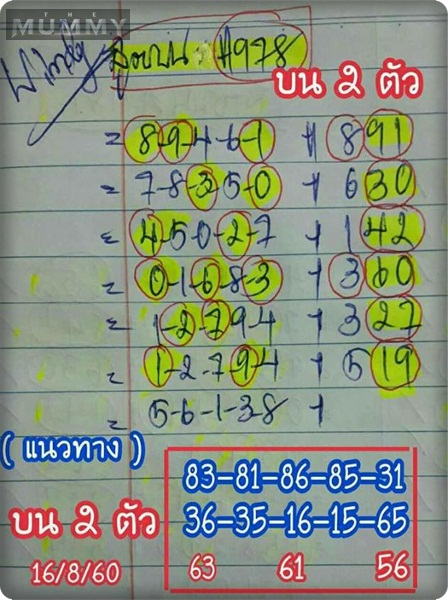 THE
MUMMY
Windy สูตรบน. A978
บน 2 ตัว
= 8-9-4-6-1 + 891
= 7-8-3-5-0 + 630
= 4-5-0-2-7 + 142
= 0-1-6-8-3 + 360
= 1-2-7-9-4 + 327
= 1-2-7-9-4 + 519
= 5-6-1-3-8 +
( แนวทาง )
83-81-86-85-31
บน 2 ตัว 36-35-16-15-65
16/8/60 63 61 56